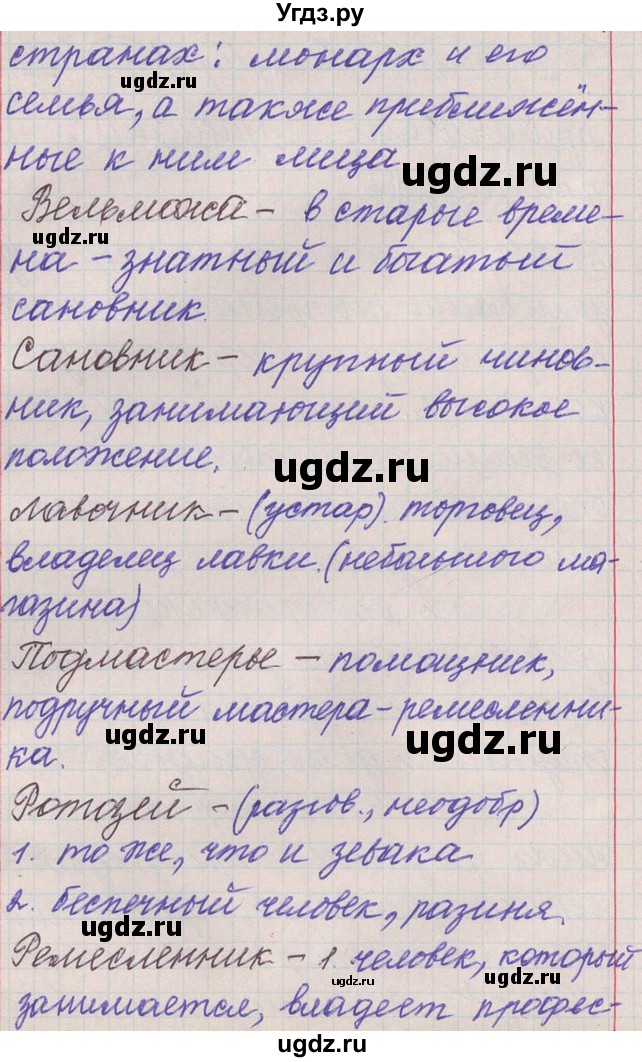 Угдз.ру
странах: монарх и его
ugdz.ru
семья, а также приближён-
ные к ним лица
ugdz.ru
Вельможа - в старые време-
ugdz.ru
на - знатный и богатый
сановник.
Сановник - крупный чинов-
ник, занимающий высокое
положение.
ugdz.ru
Лавочник - (устар). торговец,
владелец лавки. (небольшого ма-
газина)
Подмастерье - помощник,
подручный мастера-ремесленни-
ugdz.ru
ugdz.ru
ка.
Ротозей - (разгов., неодобр)
1. то же, что и зевака
2. беспечный человек, разиня.
Ремесленник - 1. человек, который
ugdz.ru
занимается, владеет профес-
ugdz.ru